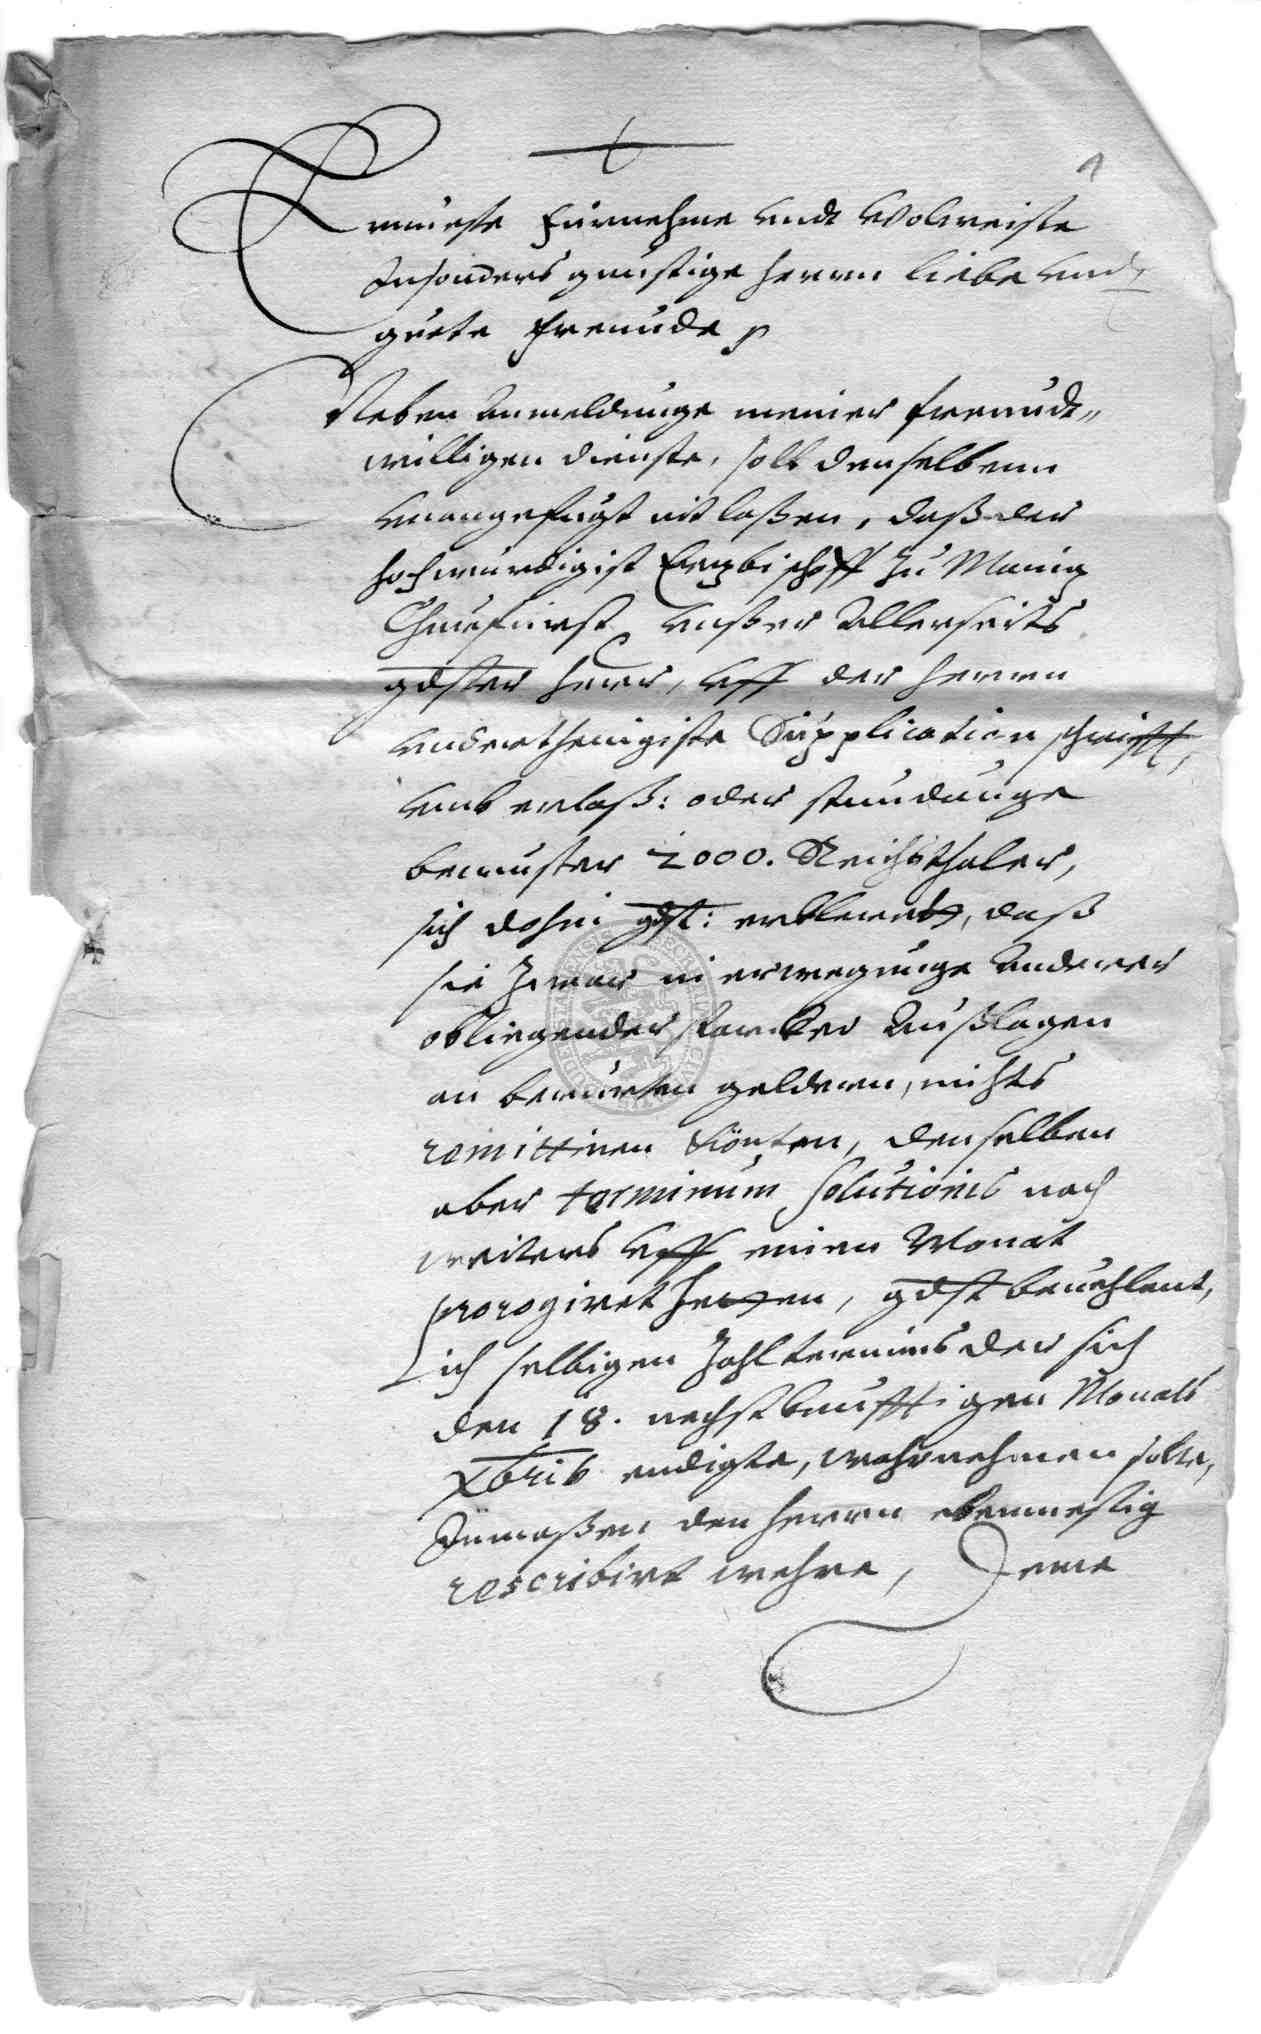 1
Ernueste Fürnehme vndt Wolweiste
Insonders günstige herrn liebe vnd
guete Freunde p
Neben Anmeldunge meiner freundt„
willigen dienste, soll denselbenn
vnangefügt nit laßen, daß der
hochwürdigist Ertzbischoff zu Maintz
Churfürst vnßer Allerseits
gdster herr, vff der herrn
vnderthenigiste Supplication schrifft,
vmb erlaß: oder stundunge
bewuster 2000. Reichsthaler,
sich dahin gdst: erklerett, daß
sie zwar in erwegunge Anderer
obliegender starcker Außlagen
an berürten geldern, nichts
remittiren könten, denselben
aber terminum solutionis noch
weiters vff einen Monat
prorogiret hetten, gdst beuehlent,
ich selbigen Zahlterminß der sich
den 18. nechstkünfftigen Monats
Xbris endigte, wahrnehmen solte,
Inmaßen den herrn ebenmeßig
rescribirt wehre, Deme